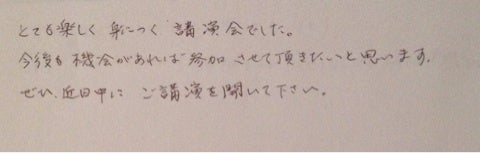 とても楽しく 身につく 講演会でした。
今後も機会があれば参加させて頂きたいと思います。
ぜひ、近日中に ご講演を開いて下さい。